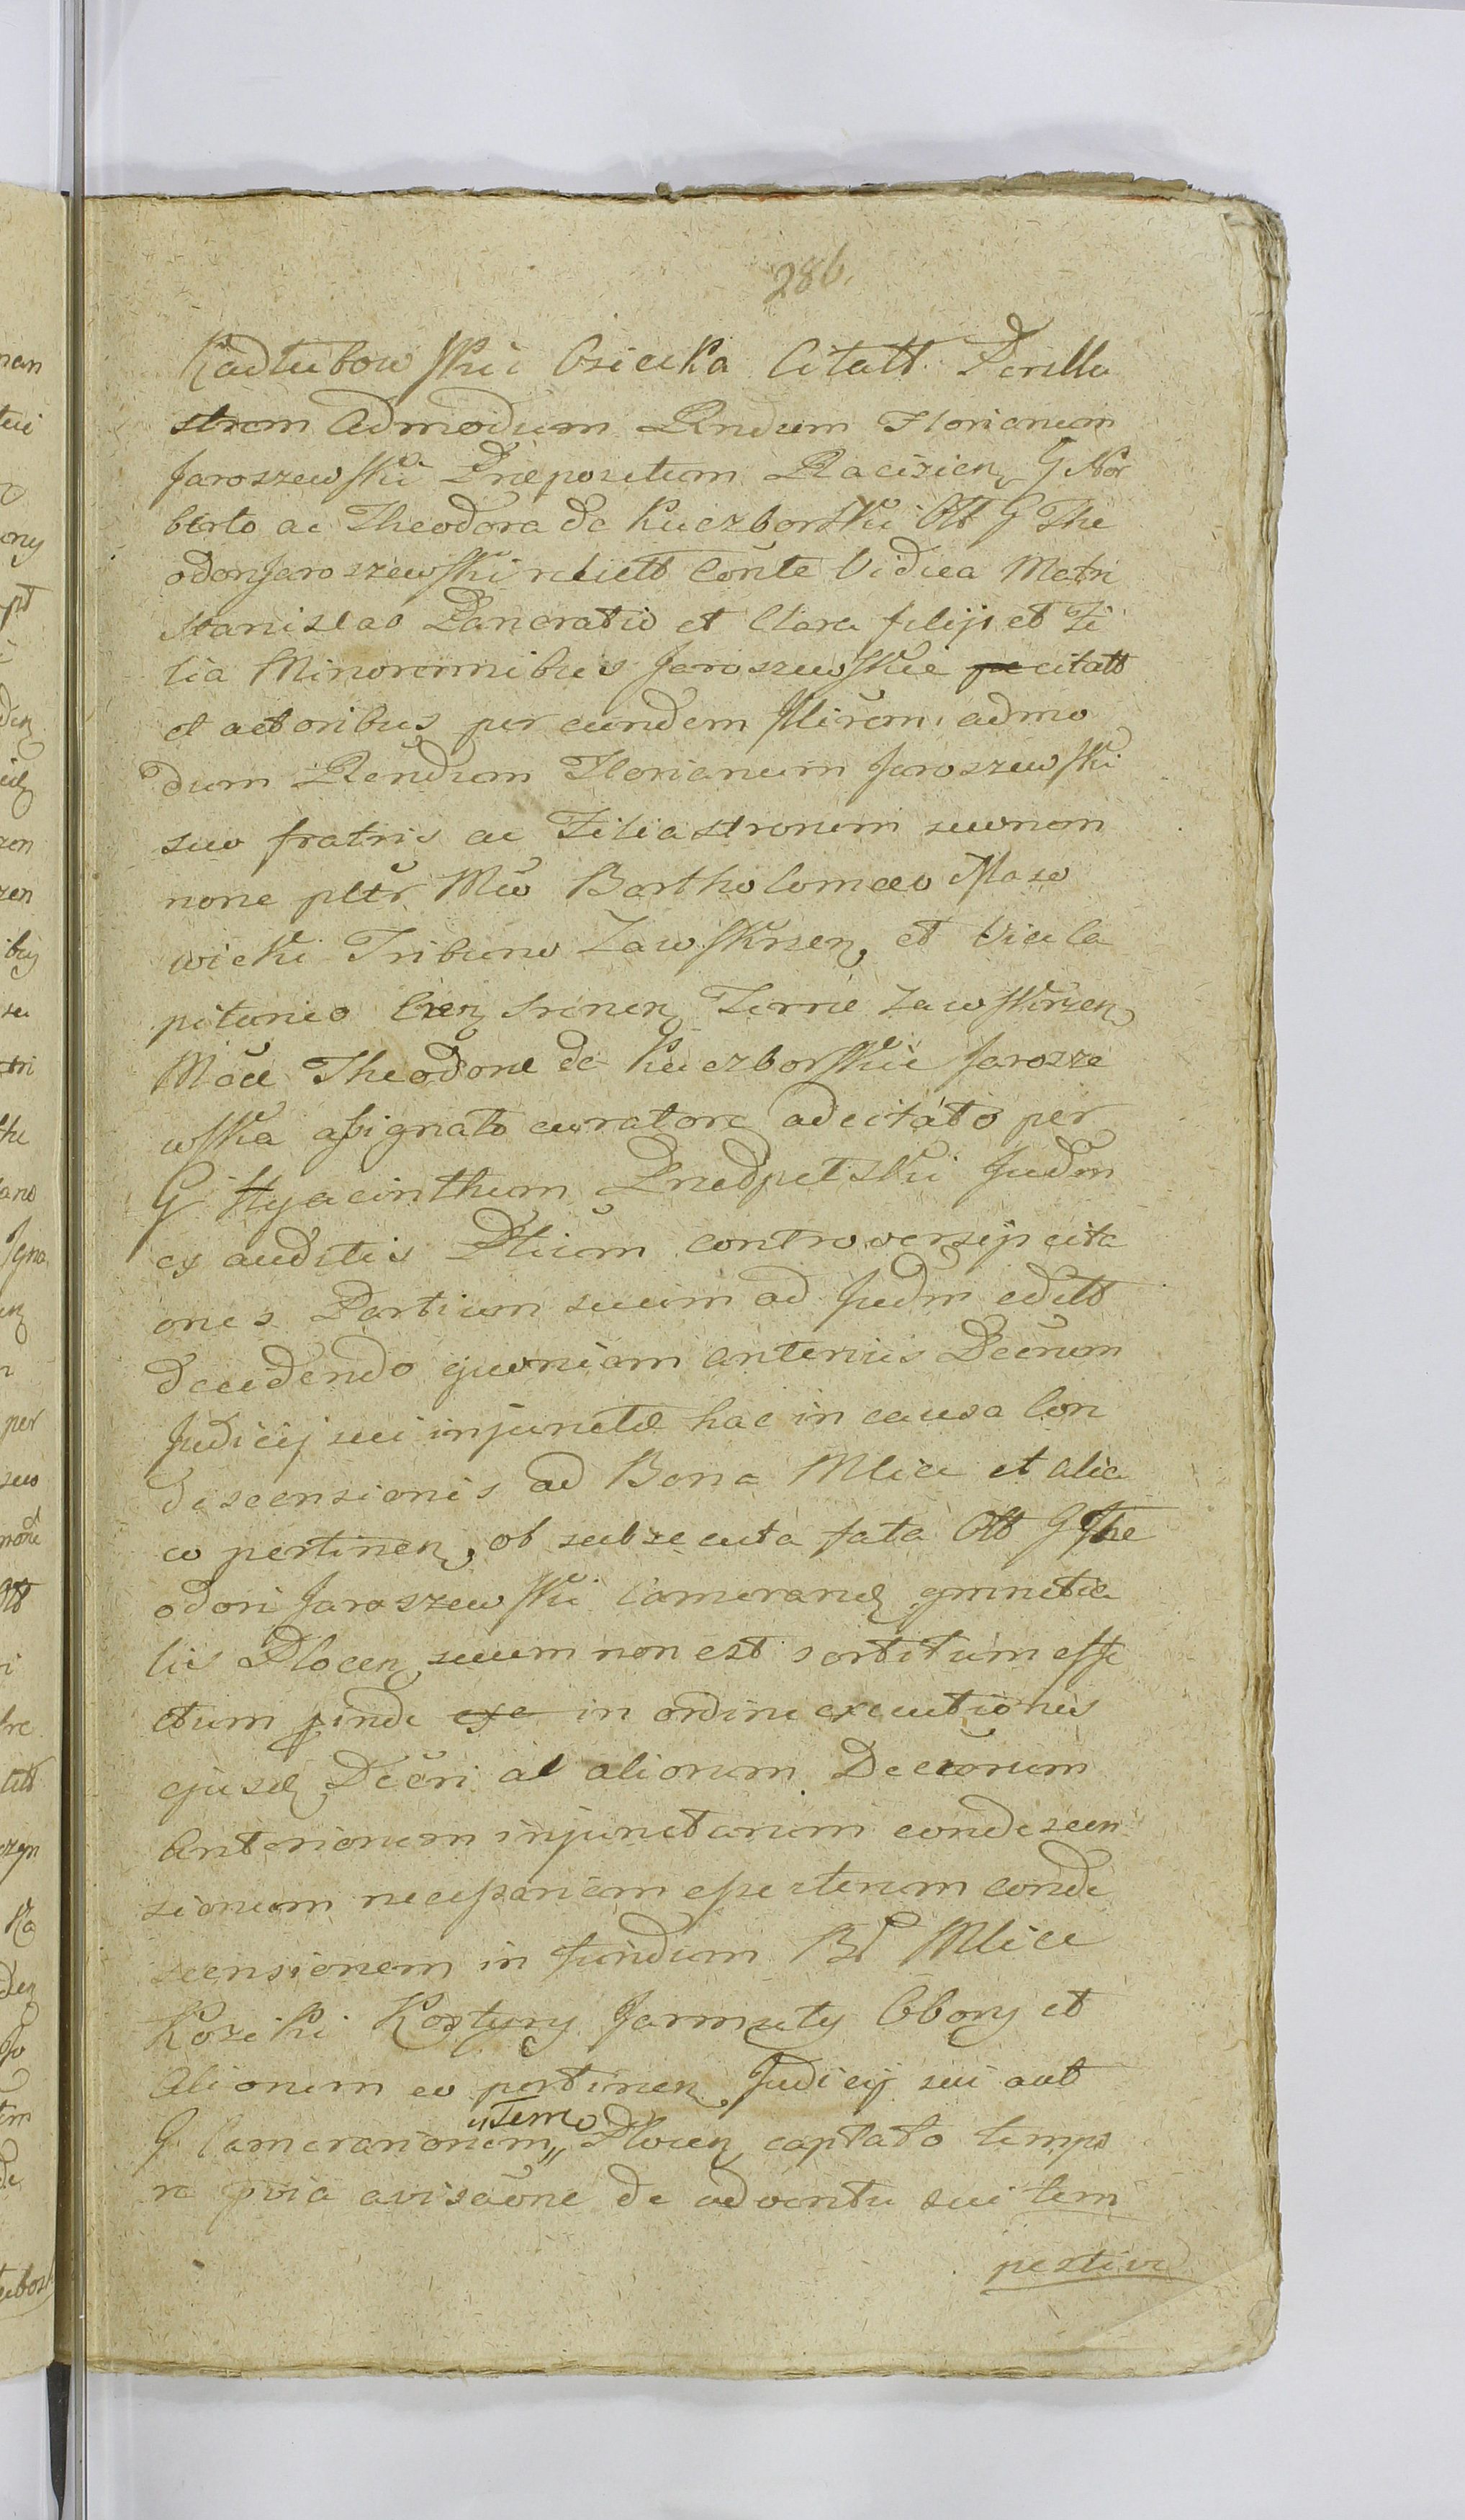 286.
Kadłubowskie Osiecka Citatt. Perillu
strem Admodum Rndum Florianum
Jaroszewski Præpositum Raciżien G Nor
berto ac Theodora de Kuczborskie Olt G The
odori Jaroszewski relictt Conte Vidua Matri
Stanislao Pancratio et Clara filijs et Fi
lia Minorennibus Jaroszewskie citatt
et actoribus per eundem Illrem admo
dum Rendum Florianum Jaroszewski
suo fratris ac Filiastrorum suorum
none pltr Mco Bartholomæo Maso
wicki Tribuno Zawskrzen et Vice Ca
pitaneo Cren Srinen Terræ Zawskrzen
Mcæ Theodoræ de Kuczborskie Jarosze
wska assignato curatore adcitato per
G Hyacinthum Przedpełski Judm
ex auditis Ptium controversijs cita
ones Partium suum ad Judm edtt
decidendo quoniam anterius Decrum
Judicij sui injunctæ hac in causa Con
descensionis ad Bona Mlice et alia
eo pertinen, ob subsecuta fata Olt G The
odori Jaroszewski Camerarij gnnetia
lis Plocen suum non est sortitum effe
ctum pinde in ordine executionis
ejusd Decri al aliorum Decrorum
Anteriorum injunctarum condescen
sionum necessariam esse iterum conde
scensionem in fundum B Mlice
Koziki Kostury Jarmuty Obory et
Aliorum eo pertinen Judicij sui aut
G Camerariorum ustemo Plocen captato tempo
re pvia avisaone de adventu sui tem
pestive